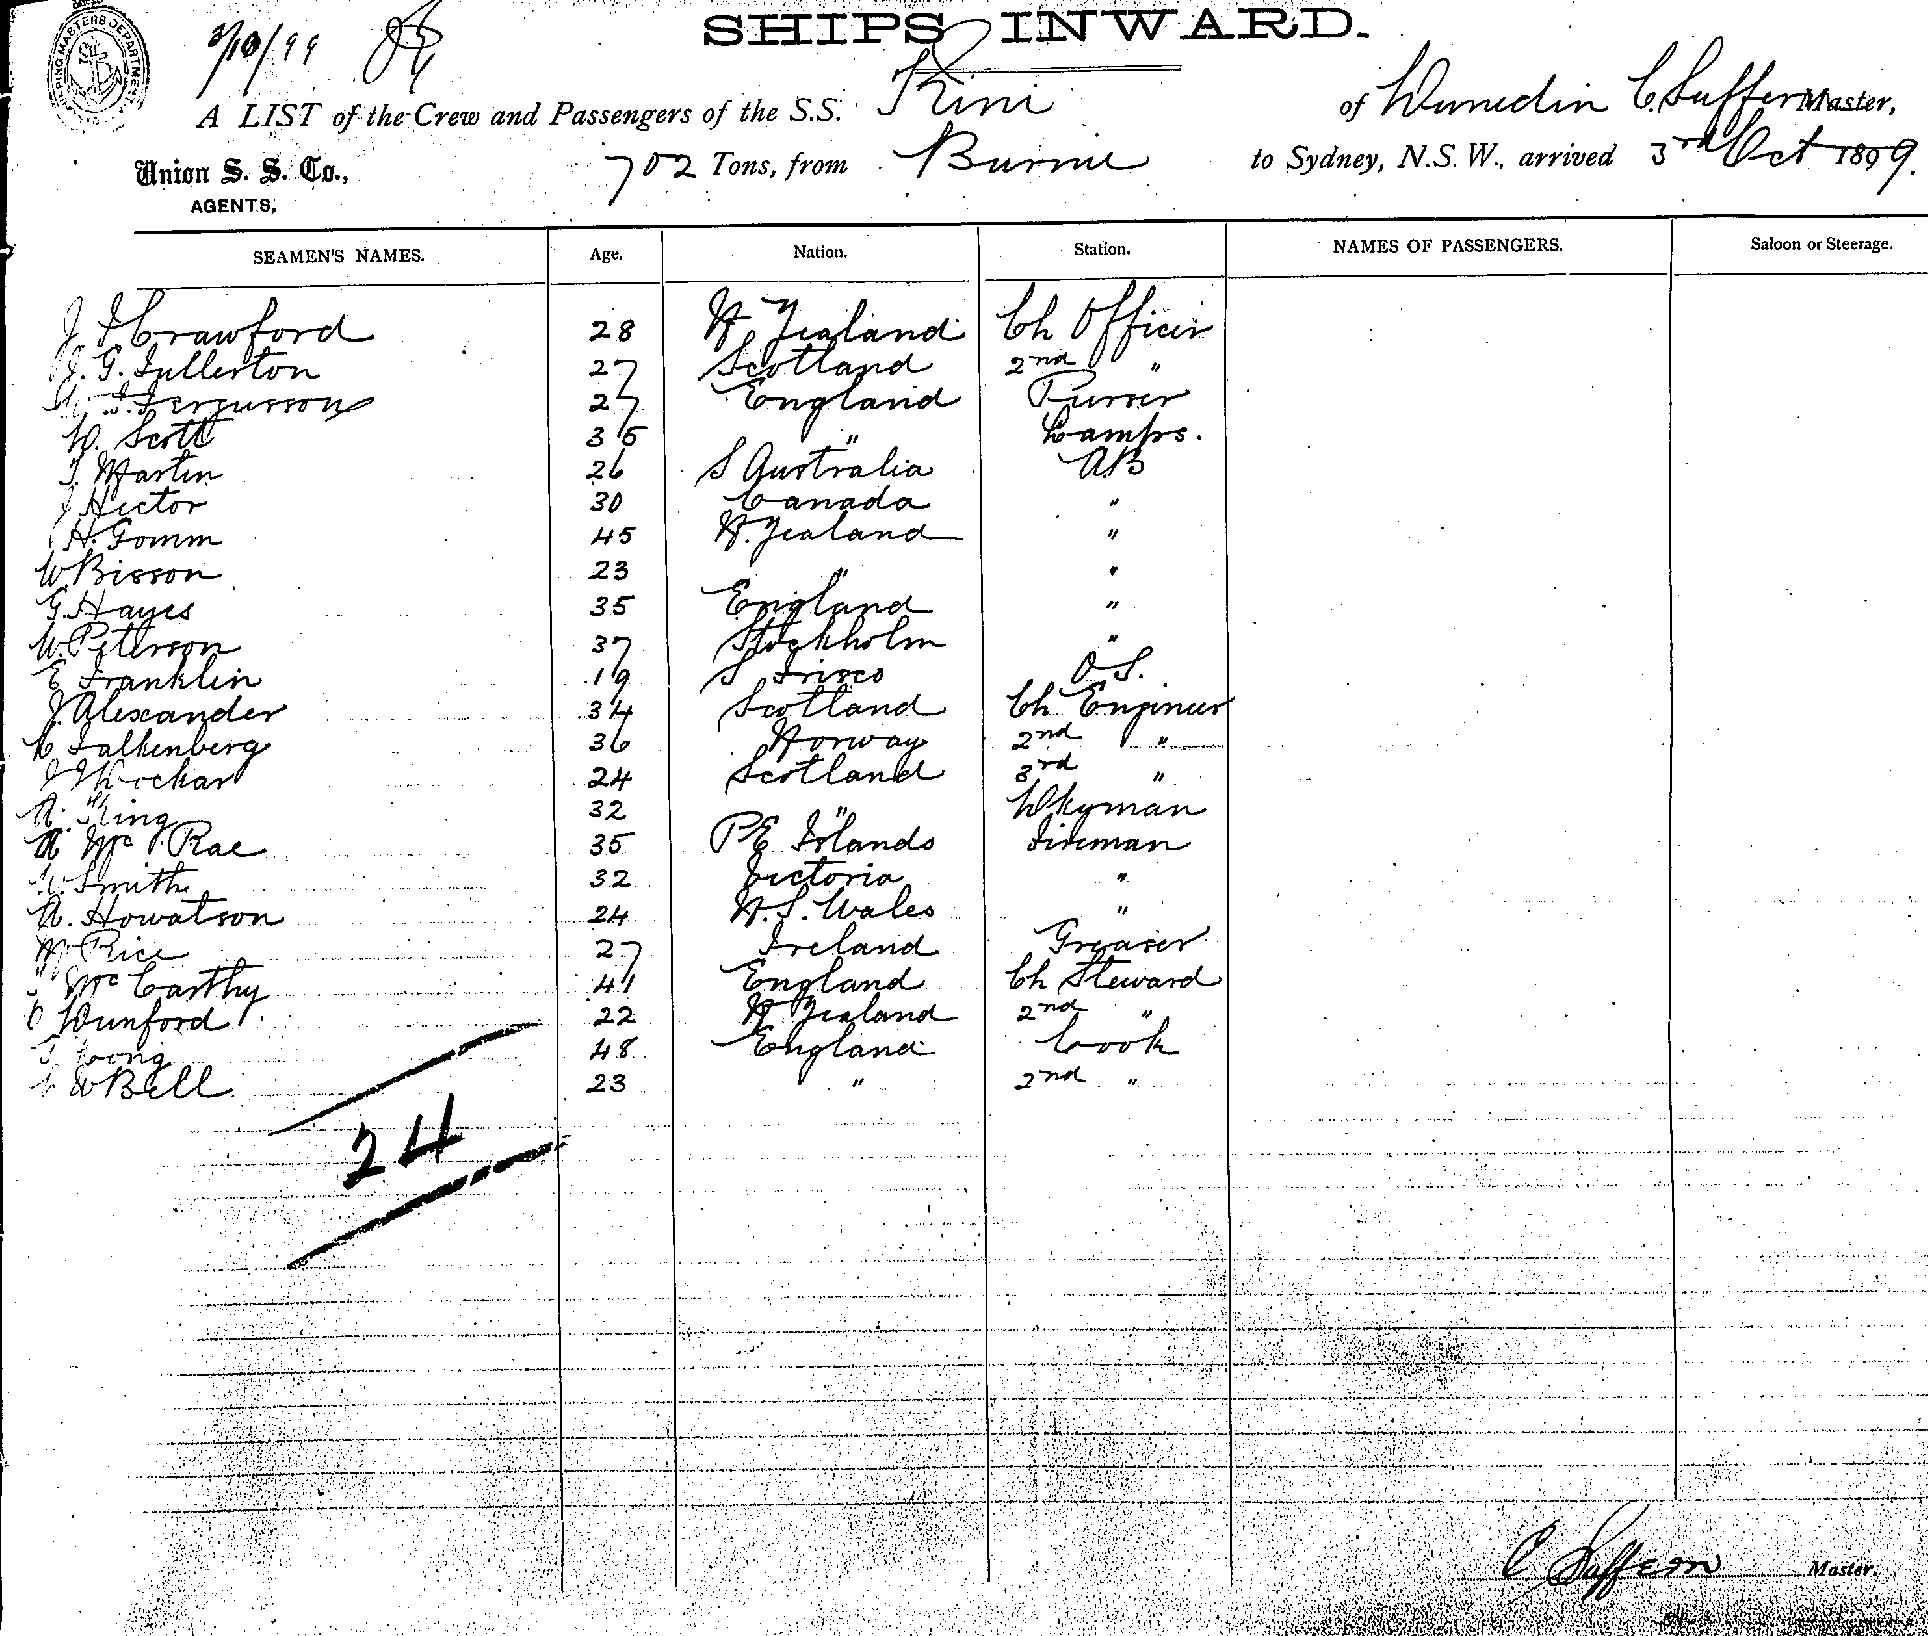 3/10/99
SHIPS INWARD.
A LIST of the Crew and Passengers of the S.S. Kini of Dunedin C. Suffern Master,
Union S. S. Co., AGENTS, 702 Tons, from Burnie to Sydney, N.S.W., arrived 3rd Oct 1899.
SEAMEN'S NAMES. Age. Nation. Station. NAMES OF PASSENGERS. Saloon or Steerage.
Crawford 28 N. Zealand Ch Officer
J. G. Fullerton 27 Scotland 2nd "
Fergusson 27 England Purser
W. Scott 35 " Lamps.
T. Martin 26 S Australia AB
J Hector 30 Canada "
H. Gomm 45 N. Zealand "
W Bisson 23 " "
G. Hayes 35 England "
W. Peterson 37 Stockholm "
E Franklin 19 S Frisco O S.
J. Alexander 34 Scotland Ch Engineer
C Falkenberg 36 Norway 2nd "
24 Scotland 3rd "
A. King 32 " Dkyman
A McRae 35 P E Islands Fireman
Smith 32 Victoria "
A. Howatson 24 N. S. Wales "
Rice 27 Ireland Greaser
McCarthy 41 England Ch Steward
Dunford 22 N Zealand 2nd "
48 England Cook
W Bell 23 " 2nd "
24
C Suffern Master.